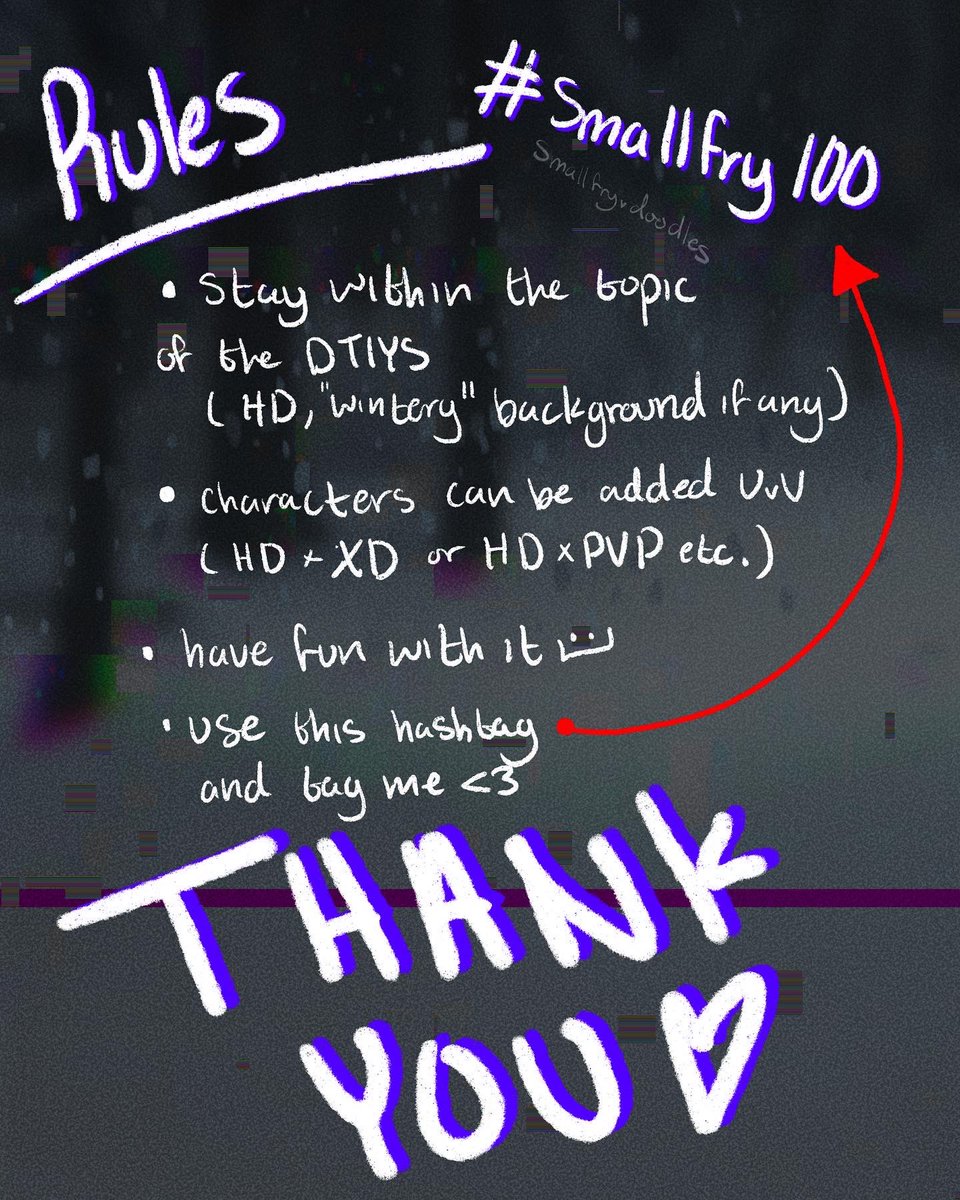 Rules
#Smallfry100
Smallfry.doodles
• Stay within the topic
of the DTIYS
( HD, "wintery" background if any)
• characters can be added UvU
( HD + XD or HD x PVP etc.)
• have fun with it :)
• use this hashtag
and tag me <3
THANK
YOU